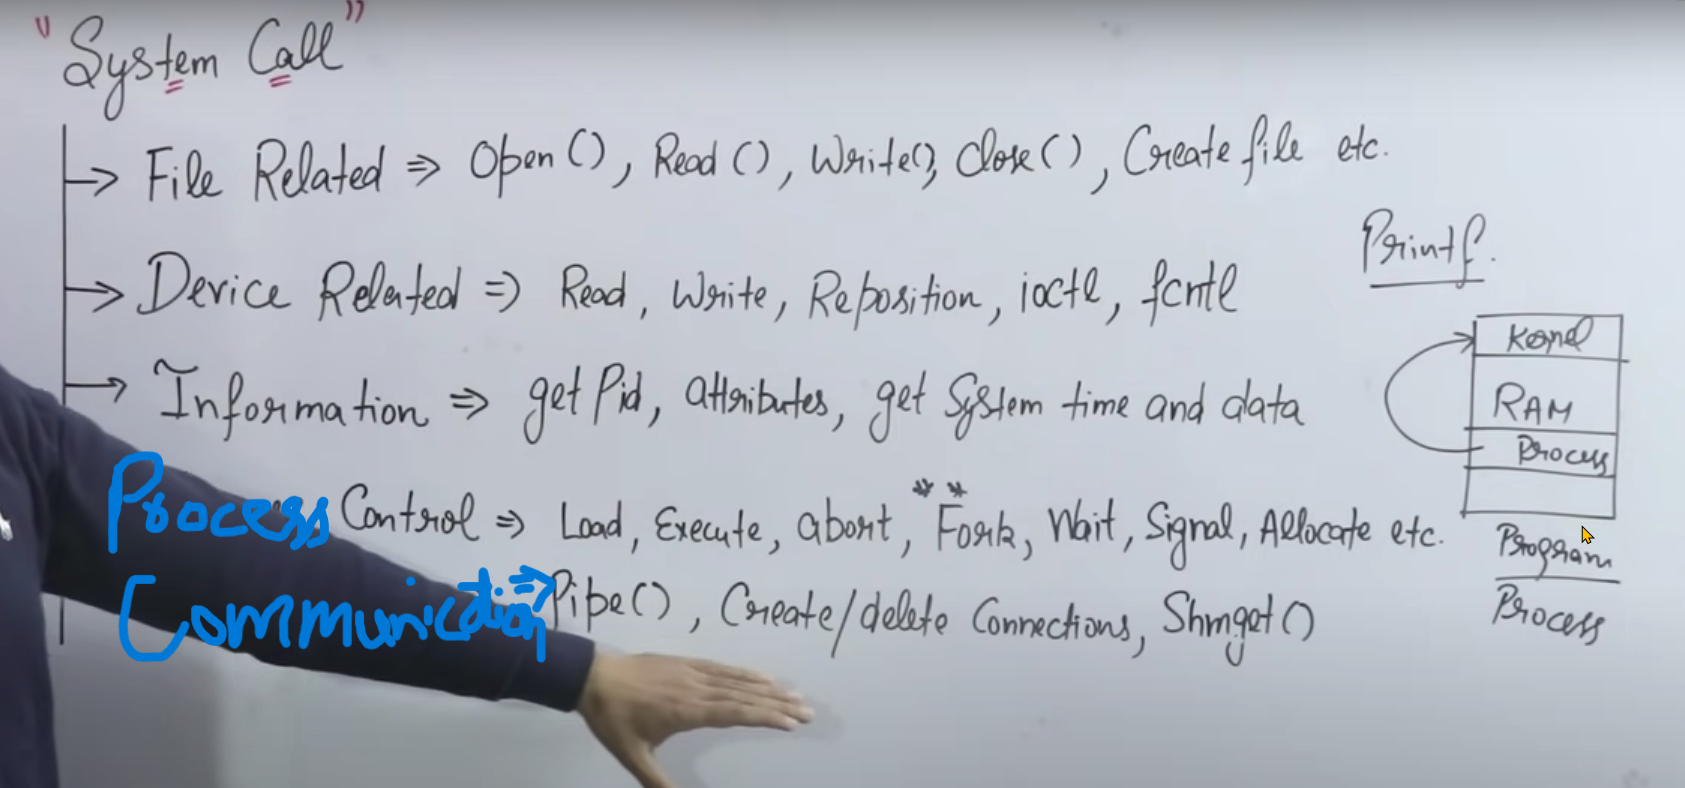 "System Call"
→ File Related ⇒ Open(), Read(), Write(), Close(), Create file etc.
→ Device Related ⇒ Read, Write, Reposition, ioctl, fcntl
→ Information ⇒ get Pid, attributes, get System time and data
Process Control ⇒ Load, Execute, abort, **Fork, Wait, Signal, Allocate etc.
Communication ⇒ Pipe(), Create/delete Connections, Shmget()
Printf.
Kernel
RAM
Process
Program
Process